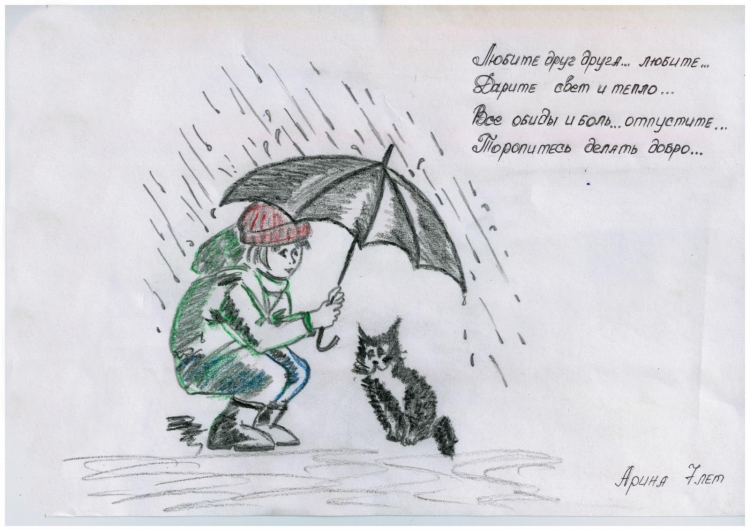 Любите друг друга... любите...
Дарите свет и тепло...
Все обиды и боль... отпустите...
Торопитесь делать добро...
Арина 7 лет